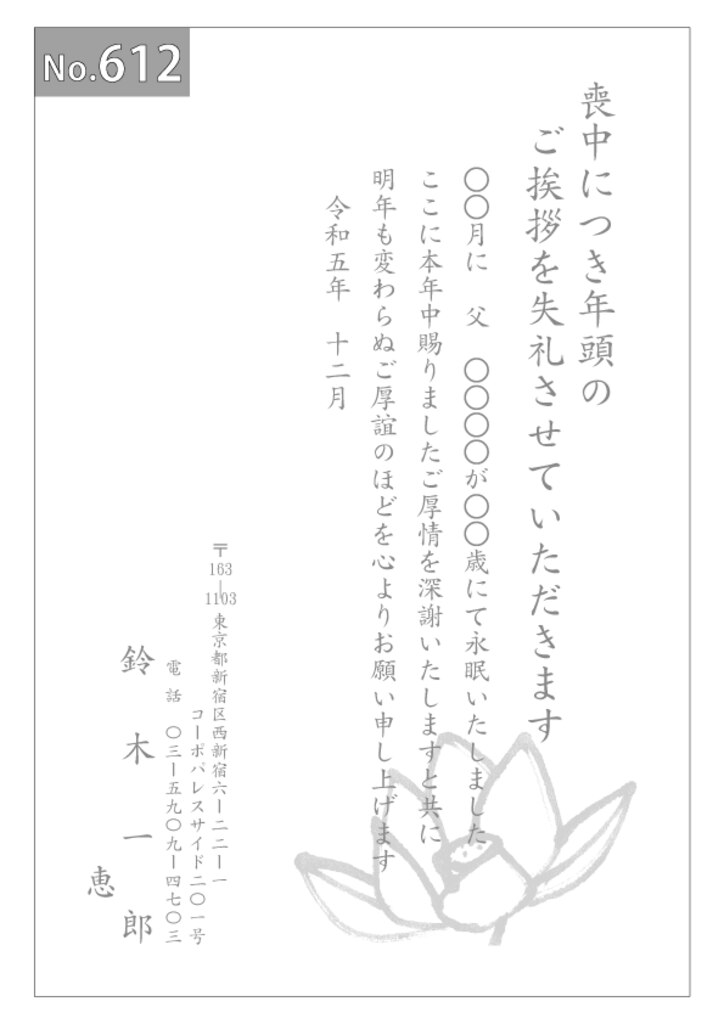 No.612
喪中につき年頭の
ご挨拶を失礼させていただきます
〇〇月に　父　〇〇〇〇が〇〇歳にて永眠いたしました
ここに本年中賜りましたご厚情を深謝いたしますと共に
明年も変わらぬご厚誼のほどを心よりお願い申し上げます
令和五年　十二月
〒163-1103 東京都新宿区西新宿六ー二二ー一
コーポパレスサイド二〇一号
電話　〇三ー五九〇九ー四七〇三
鈴木一郎
恵